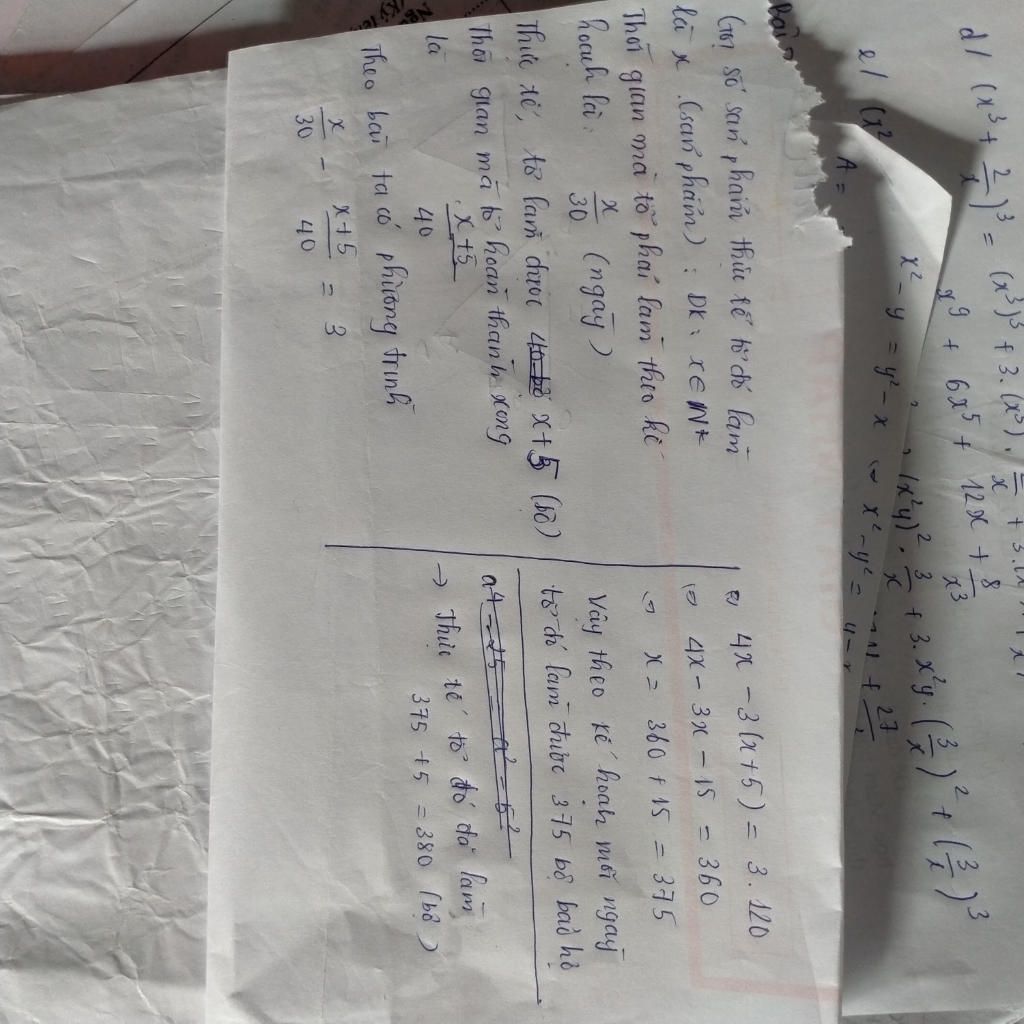 Gọi số sản phẩm thực tế tổ đó làm
là x (sản phẩm) : ĐK: x ∈ N*
Thời gian mà tổ phải làm theo kế
hoạch là: x/30 (ngày)
Thực tế, tổ làm được x+5 (bộ)
Thời gian mà tổ hoàn thành xong
là (x+5)/40
Theo bài ta có phương trình
x/30 - (x+5)/40 = 3
⇔ 4x - 3(x+5) = 3.120
⇔ 4x - 3x - 15 = 360
⇔ x = 360 + 15 = 375
Vậy theo kế hoạch mỗi ngày
tổ đó làm được 375 bộ bảo hộ
a⁴ - 25 = a² = 5²
→ Thực tế tổ đó đã làm
375 + 5 = 380 (bộ)
d/ (x³ + 2/x)³ = (x³)³ + 3.(x³).
+ 6x⁵ + 12x + 8/x³
e/ (x²
(x²y)². 3/x + 3.x²y.(3/x)² + (3/x)³
+ 27/
A =
x² - y = y² - x ⇔ x² - y² = y - x